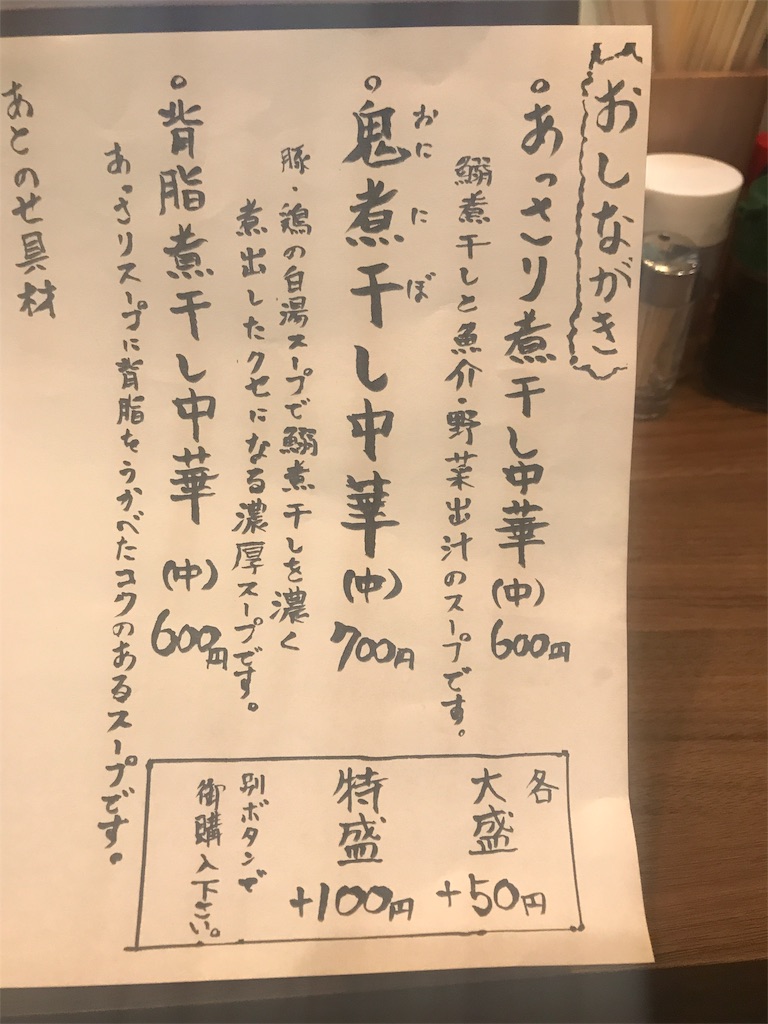 おしながき
。あっさり煮干し中華(中)600円
鰯煮干しと魚介・野菜出汁のスープです。
。鬼煮干し中華(中)700円
おに に ぼ
豚・鶏の白湯スープで鰯煮干しを濃く
煮出したクセになる濃厚スープです。
。背脂煮干し中華(中)600円
あっさりスープに背脂をうかべたコクのあるスープです。
あとのせ具材
各
大盛+50円
特盛+100円
別ボタンで
御購入下さい。